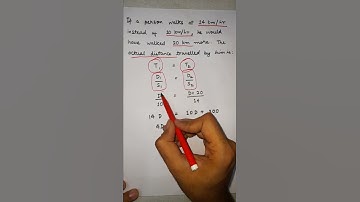 If a person walks at 14 km/hr
instead of 10 km/hr, he would
have walked 20 km more. The
actual distance travelled by him is:
T₁ = T₂
D₁/S₁ = D₂/S₂
10 = D+20/14
14 D = 10D + 200
4D